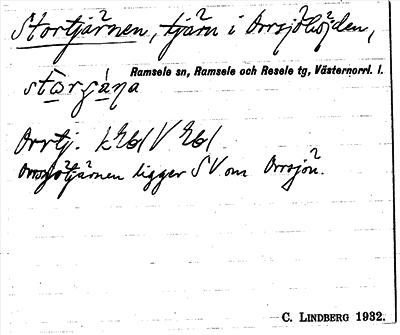 Stortjärnen, tjärn i Orrsjöhöjden,
Ramsele sn, Ramsele och Resele tg, Västernorrl. l.
Orrtj.
Orrsjötjärnen ligger SV om Orrsjön.
C. LINDBERG 1932.